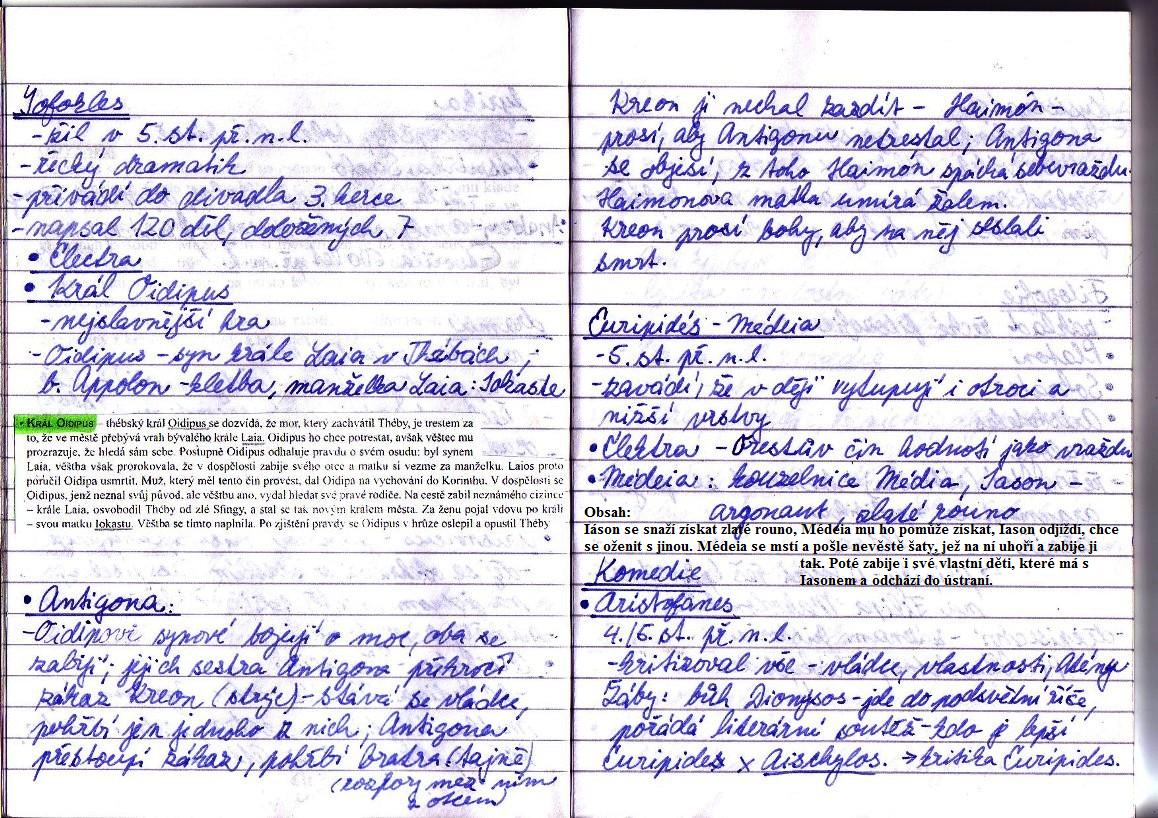 Sofokles
- žil v 5. st. př. n. l.
- řecký dramatik
- přivádí do divadla 3. herce
- napsal 120 děl, dochovaných 7
• Électra
• Král Oidipus
- nejslavnější hra
- Oidipus - syn krále Laia v Thébách ;
b. Appolon - kletba, manželka Laia : Iokaste
• KRÁL OIDIPUS – thébský král Oidipus se dozvídá, že mor, který zachvátil Théby, je trestem za
to, že ve městě přebývá vrah bývalého krále Laia. Oidipus ho chce potrestat, avšak věštec mu
prozrazuje, že hledá sám sebe. Postupně Oidipus odhaluje pravdu o svém osudu: byl synem
Laia, věštba však prorokovala, že v dospělosti zabije svého otce a matku si vezme za manželku. Laios proto
poručil Oidipa usmrtit. Muž, který měl tento čin provést, dal Oidipa na vychování do Korinthu. V dospělosti se
Oidipus, jenž neznal svůj původ, ale věštbu ano, vydal hledat své pravé rodiče. Na cestě zabil neznámého cizince
– krále Laia, osvobodil Théby od zlé Sfingy, a stal se tak novým králem města. Za ženu pojal vdovu po králi
– svou matku Iokastu. Věštba se tímto naplnila. Po zjištění pravdy se Oidipus v hrůze oslepil a opustil Théby
• Antigona :
- Oidipovi synové bojují o moc, oba se
zabijí ; jejich sestra Antigona překročí
zákaz Kreon (strýc) - stává se vládce,
pohřbí jen jednoho z nich ; Antigona
přestoupí zákaz, pohřbí bratra (tajně)
(rozpory mezi ním
a otcem)
Kreon ji nechal zazdít - Haimón -
prosí, aby Antigonu netrestal ; Antigona
se objesí, z toho Haimón spáchá sebevraždu.
Haimonova matka umírá žalem.
Kreon prosí bohy, aby na něj seslali
smrt.
Euripidés - Médeia
- 5. st. př. n. l.
- zavádí, že v ději vytupují i otroci a
nižší vrstvy
• Elektra - Orestův čin hodnotí jako vraždu
• Médeia : kouzelnice Média, Iason -
argonant zlaté rouno
Obsah:
Iáson se snaží získat zlaté rouno, Médeia mu ho pomůže získat, Iason odjíždí, chce
se oženit s jinou. Médeia se mstí a pošle nevěstě šaty, jež na ní uhoří a zabije ji
tak. Poté zabije i své vlastní děti, které má s
Iasonem a odchází do ústraní.
Komedie
• Aristofanes
4./5. st. př. n. l.
- kritizoval vše - vládce, vlastnosti, Atény
Žáby : bůh Dionysos - jde do podsvětní říše,
pořádá literární soutěž - kdo je lepší
Euripides x Aischylos. → kritika Euripides.